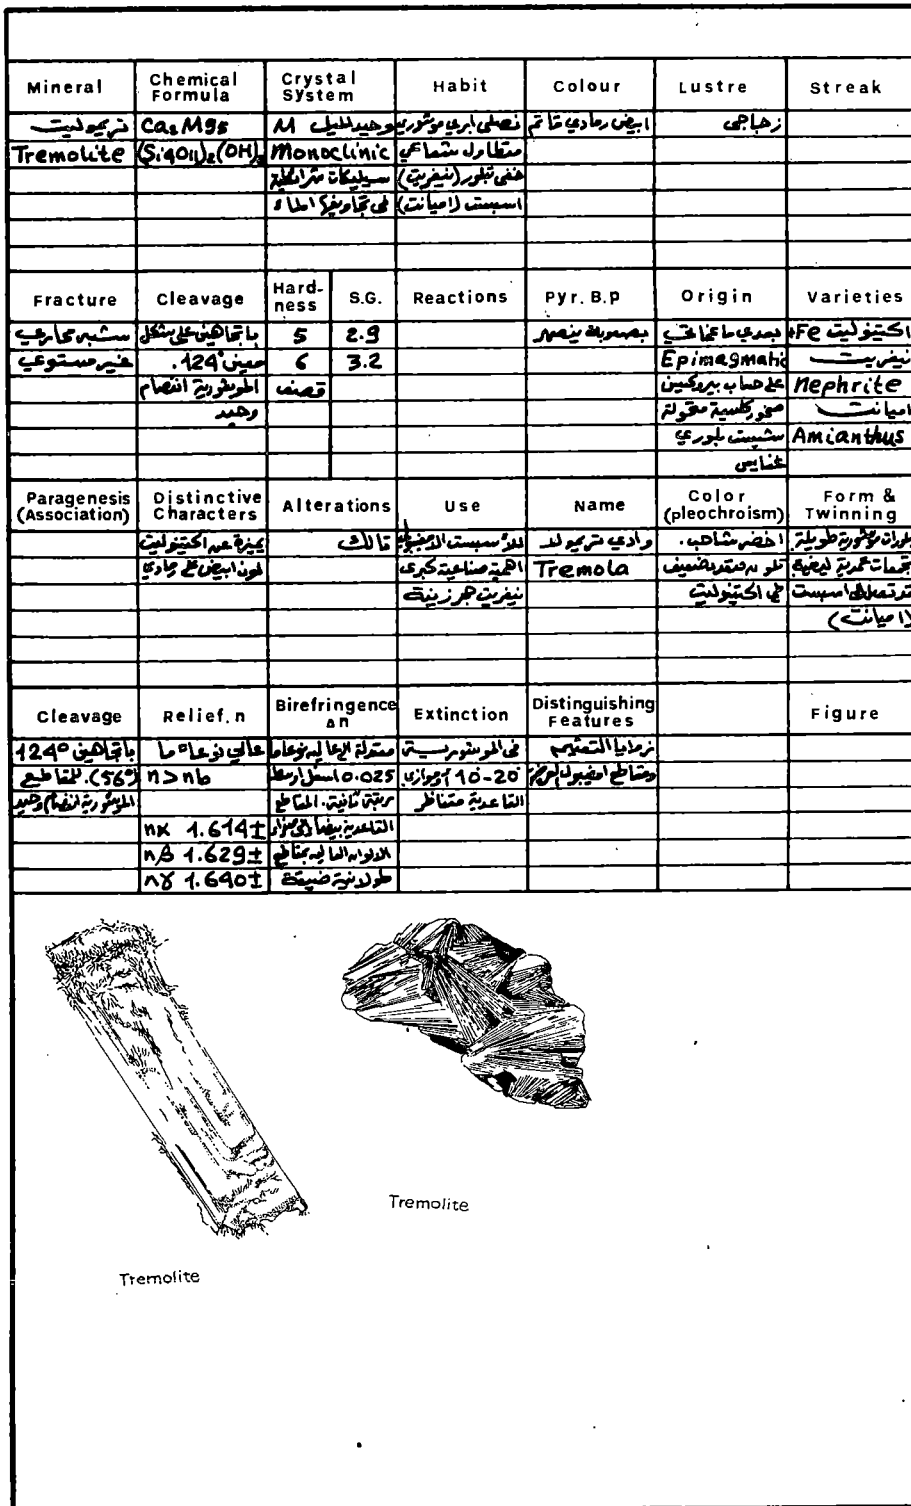 Mineral Chemical Formula Crystal System Habit Colour Lustre Streak
تريموليت Ca₂Mg5 وحيد الميل M نصلي ابري موشوري ابيض رمادي قاتم زجاجي
Tremolite (Si4O11)₂(OH)₂ Monoclinic متطاول شعاعي
سيليكات متراكبة خفي تبلور (نيفريت)
في تجاويفها الماء اسبست (اميانت)
Fracture Cleavage Hardness S.G. Reactions Pyr. B.P Origin Varieties
شبه محاري باتجاهين على شكل 5 2.9 بصعوبة ينصهر بعدي ماغماتي اكتينوليت Fe+
غير مستوي معين 124°. 6 3.2 Epimagmatic نيفريت
الموشورية انفصام قصف على حساب بيروكسين nephrite
وحيد صخور كلسية متحولة اميانت
شيست بلوري Amianthus
غنايس
Paragenesis (Association) Distinctive Characters Alterations Use Name Color (pleochroism) Form & Twinning
يميزه عن اكتينوليت تالك للأسبست وادي تريمولا اخضر شاحب. بلورات موشورية طويلة
لونه ابيض اهمية صناعية كبرى Tremola تلون ضعيف تجمعات عمودية
نيفريت حجر زينة في اكتينوليت اسبست
(اميانت)
Cleavage Relief. n Birefringence Δn Extinction Distinguishing Features Figure
باتجاهين 124° عالي نوعا ما في الموشورية زوايا
(56°). للمقاطع n>nb 0.025 10-20° ومقاطع
الموشورية انفصام وحيد رتبة ثانية. المقاطع القاعدية متناظر
nα 1.614± القاعدية
nβ 1.629± الالوان
nγ 1.640± طولانية ضيقة
Tremolite
Tremolite